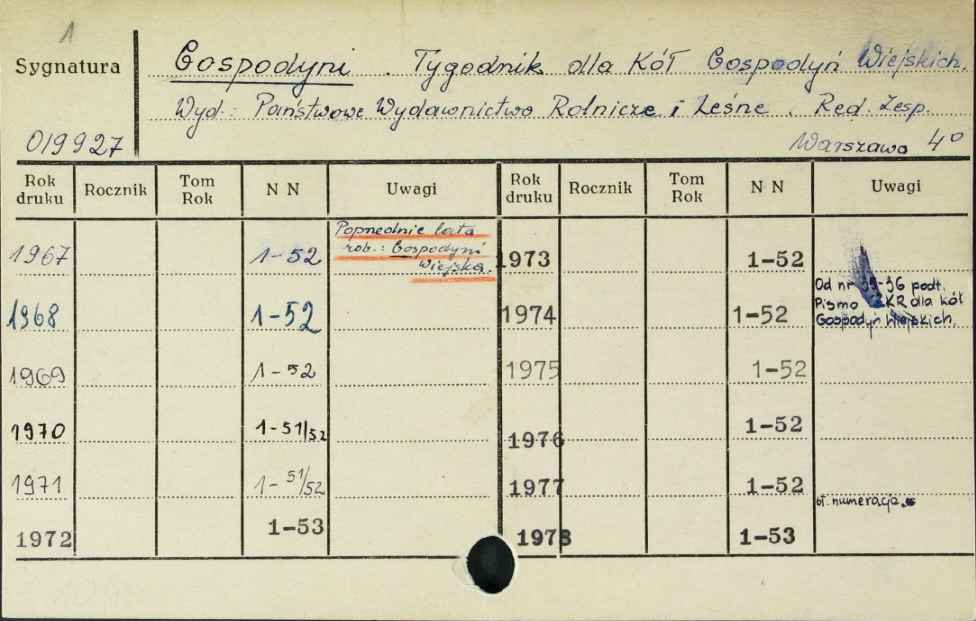 1
Sygnatura
019927
Gospodyni. Tygodnik dla Kół Gospodyń Wiejskich.
Wyd.: Państwowe Wydawnictwo Rolnicze i Leśne. Red. Zesp.
Warszawa 4°
Rok druku Rocznik Tom Rok N N Uwagi Rok druku Rocznik Tom Rok N N Uwagi
1967 1-52 Poprzednie lata
rob.: Gospodyni
Wiejska.
1973 1-52
1968 1-52
1974 1-52 Od nr podt.
Pismo CZKR dla kół
Gospodyń Wiejskich.
1969 1-52
1975 1-52
1970 1-51/52
1976 1-52
1971 1-51/52
1977 1-52
1972 1-53
1978 1-53 bł. numeracja.